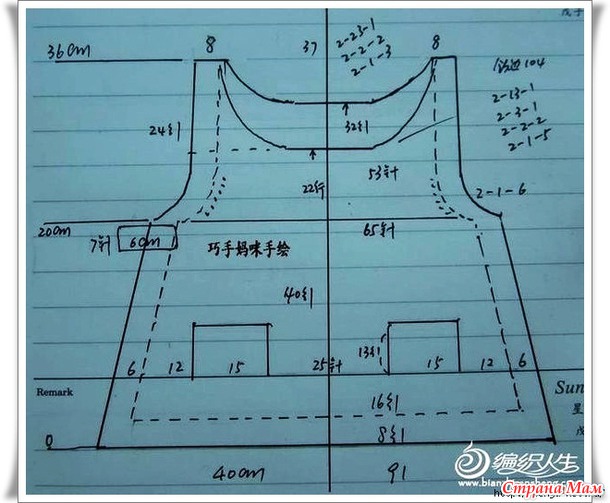 36cm
8
37
8
2-23-1
2-2-2
2-1-3
104
2-13-1
2-3-1
2-2-2
2-1-5
24行
32行
22行
53针
2-1-6
20cm
7针
6cm
65针
巧手妈咪手绘
40行
13行
6
12
15
25针
15
12
6
Remark
Sun
星
16行
0
8行
40cm
91
编织人生
СтранаМам